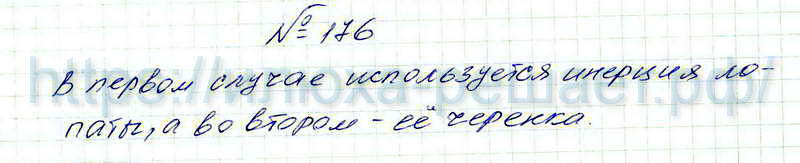 № 176
В первом случае используется инерция ло-
паты, а во втором - её черенка.